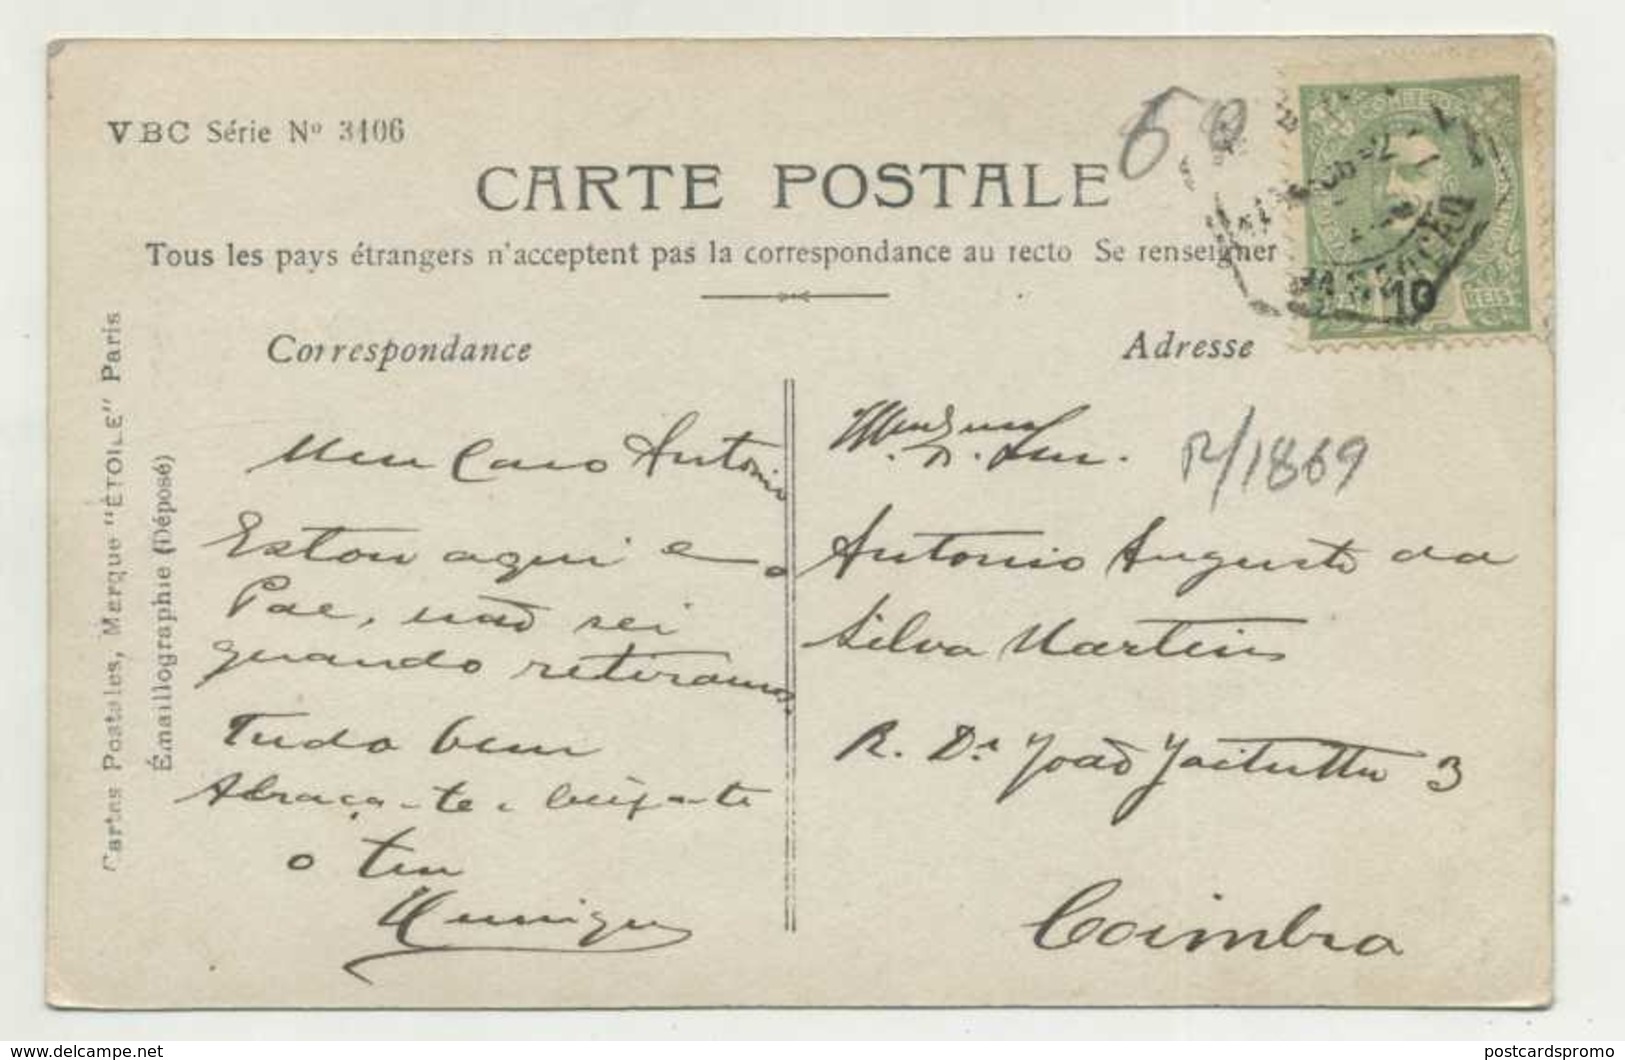 VBC Série Nº 3106
CARTE POSTALE
60
Tous les pays étrangers n'acceptent pas la correspondance au recto Se renseigner
CORREIOS
10
REIS
Correspondance
Adresse
Cartes Postales, Marque "ÉTOILE" Paris
Émaillographie (Déposé)
Meu Caro Antonio
Estou aqui e o
Pae, não sei
quando retiramos.
Tudo bem
Abraça-te e beija-te
o teu
Henrique
R/1869
Antonio Augusto da
Silva Martins
R. Dr João Jacintho 3
Coimbra
delcampe.net
postcardspromo